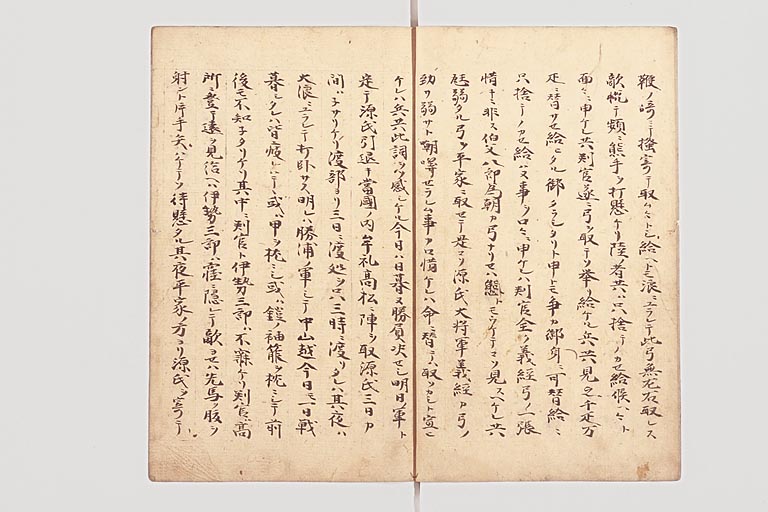 鞭ノ崎ニテ掻寄テ取ムトシ給ヘトモ浪ニユラレテ此弓無左右取レス
敵悦テ頻ニ熊手ヲ打懸ケリ陸者共ハ只捨テノカせ給候ヘトソ
面々ニ申ケレ共判官遂ニ弓ヲ取テソ挙リ給ケル兵共見之千疋万
疋ニ替サせ給ヒタル御タラシタリト申トモ争カ御身ニ可替給ニ
只捨テノカせ給ハヌ事ソロト申ケレハ判官全ク義経弓ノ一張
惜キニ非ス伯父八郎為朝カ弓ナリせハ態トモウケテソ見スヘケレ共
尫弱タル弓ヲ平家ニ取せテ是コソ源氏大将軍義経カ弓ノ
幼サ弱サト朝哢せラレム事カ口惜ケレハ命ニ替テ取ツルソカシト宣ヒ
ケレハ兵共此詞ヲソ感シケル今日ハ日暮ヌ勝負决せし明日ノ軍ト
定テ源氏引退キ當國ノ内牟礼高松ニ陣ヲ取源氏三日カ
間ハネサリケリ渡部ヨリ三日ニ渡処ヲ只三時ニ渡リタレハ其夜ハ
大浪ニユラレテ打卧サス明レハ勝浦ノ軍シテ中山越今日モ一日戦
暮シタレハ皆疲レハテヽ或ハ甲ヲ枕ニシ或ハ鎧ノ袖箙ヲ枕ニシテ前
後モ不知子タリケリ其中ニ判官ト伊勢三郎ハ不寐ケリ判官ハ高
所ニ登テ遠ク見給ヘハ伊勢三郎ハ窪ニ隠レテ敵ヨせハ先馬ノ腹ヲ
射ント片手矢ハケテソ待懸タル其夜平家ノ方ヨリ源氏ヲ寄テ